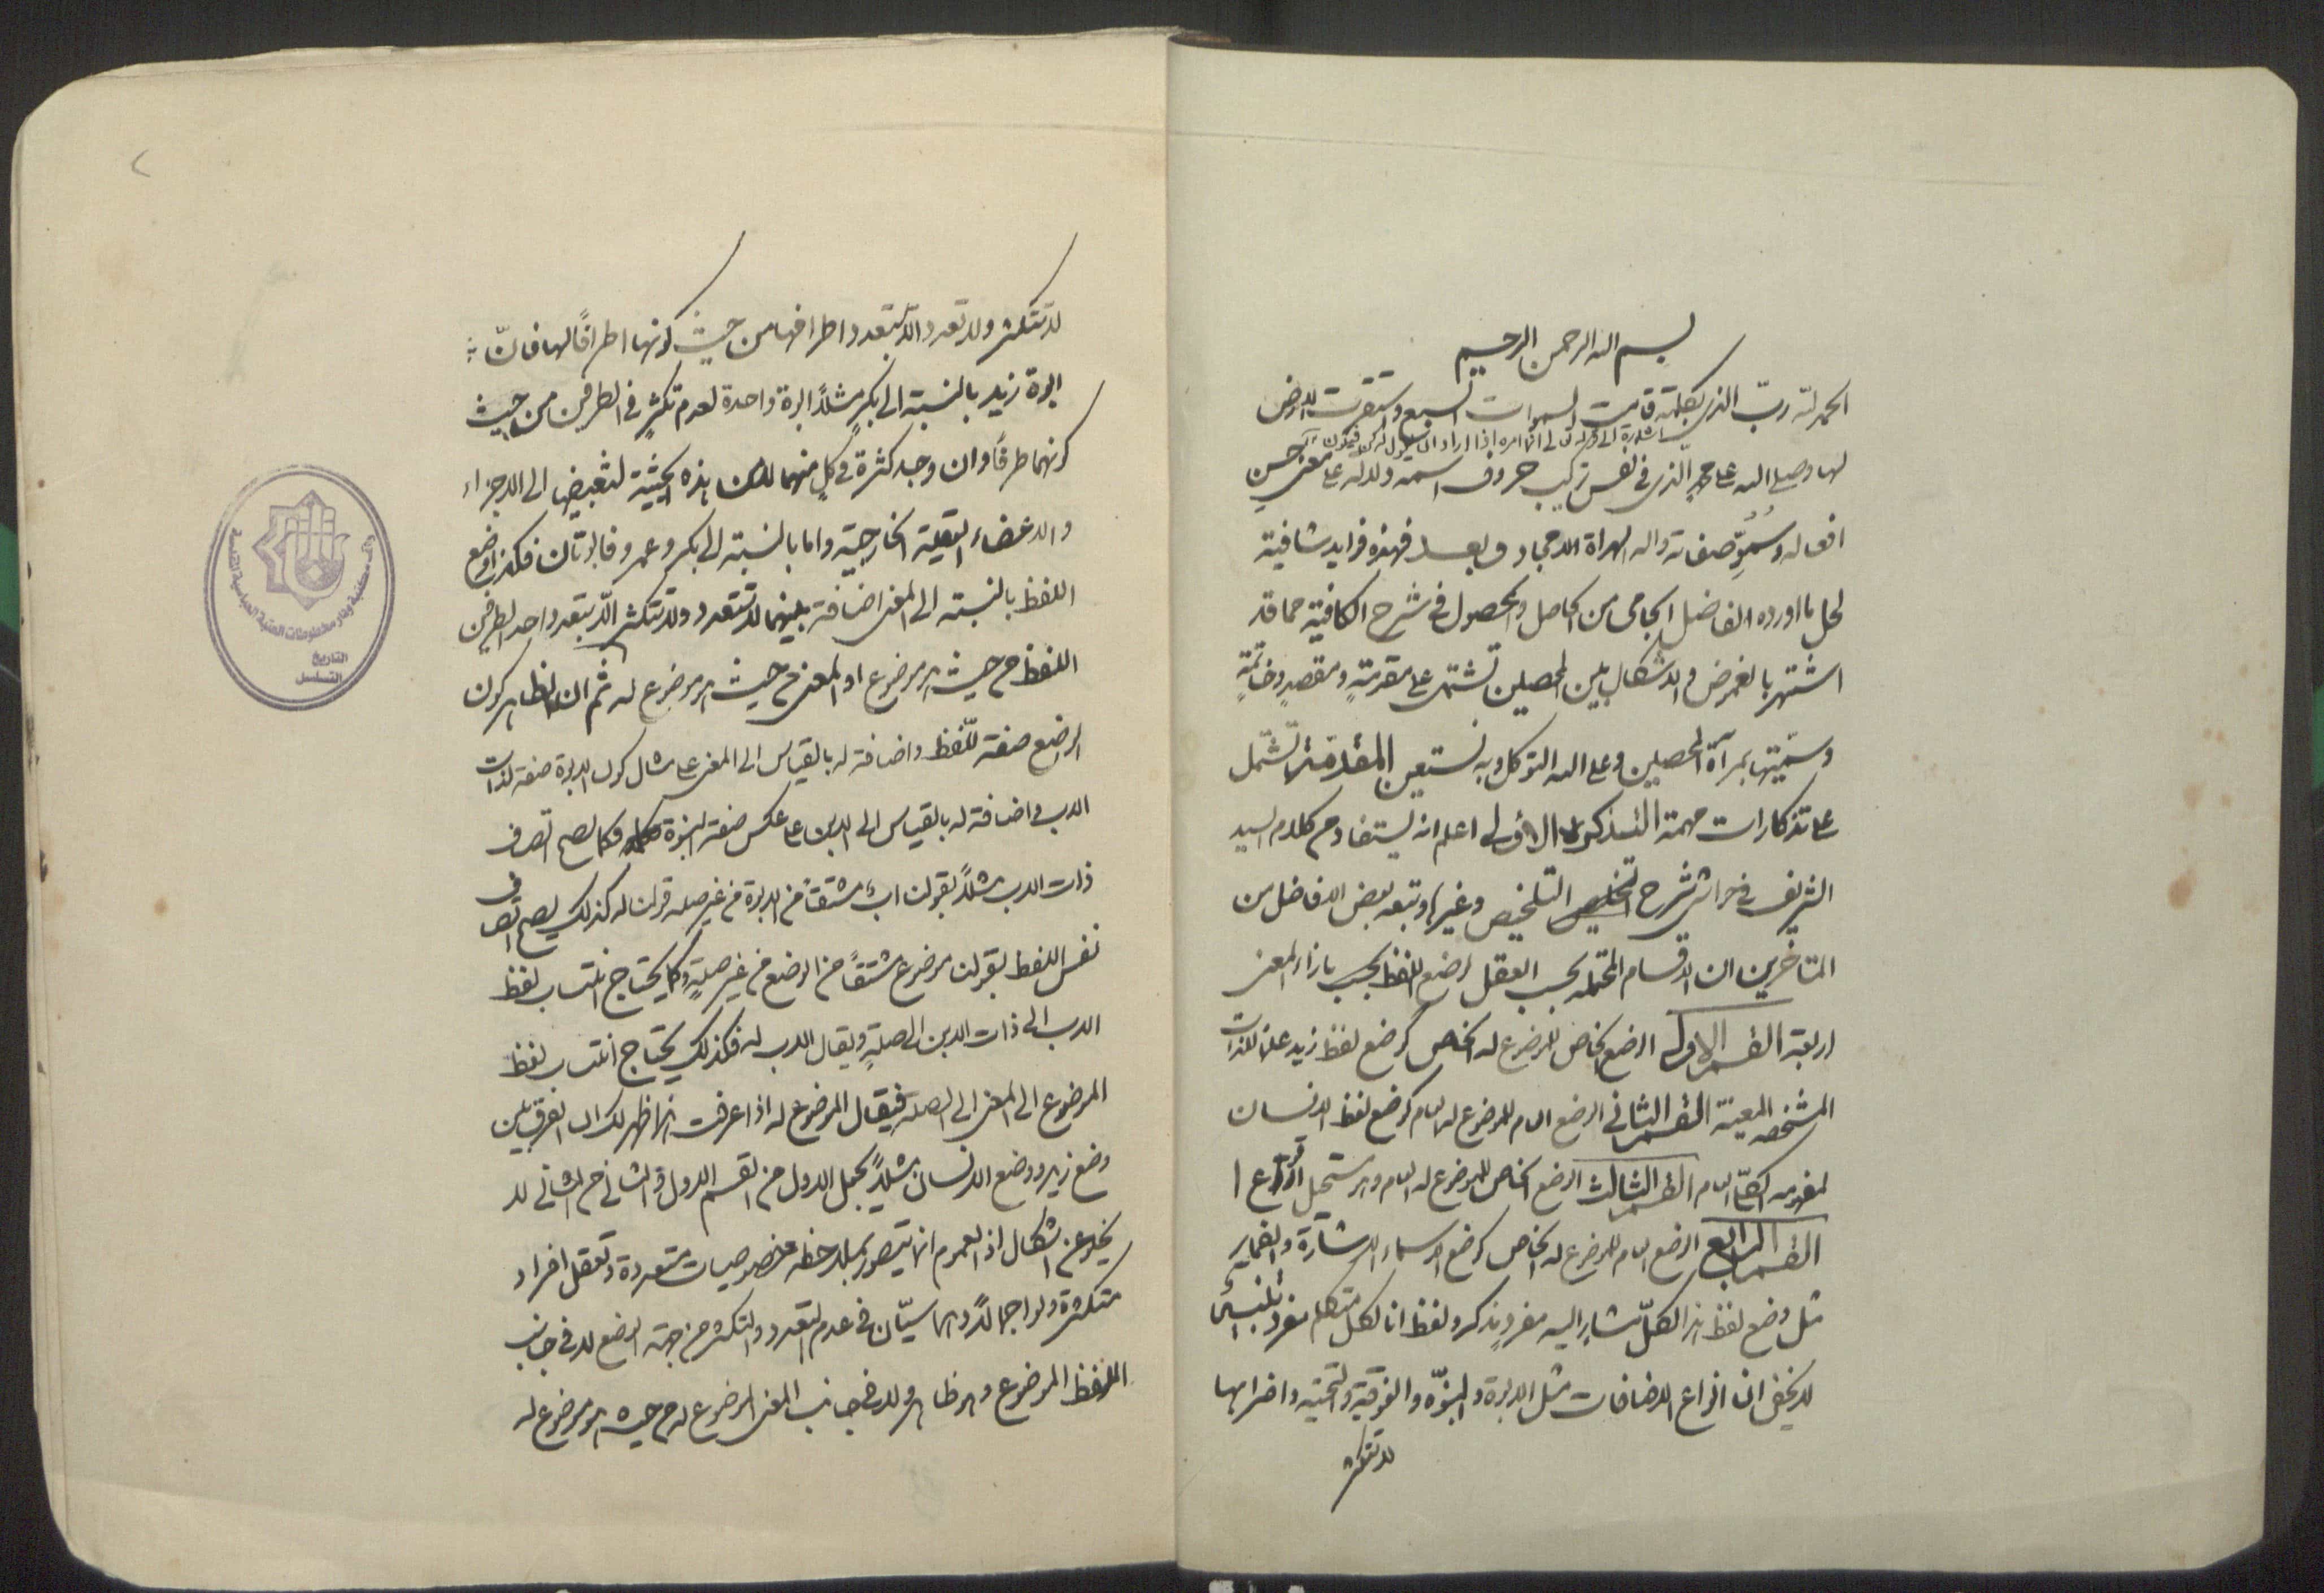 بسم الله الرحمن الرحيم
الحمد لله ربّ الذى بكلمته قامت السموات السبع واستقرت الارض
اشارة الى قوله تعالى انما امره اذا اراد ان يقول له كن فيكون
لها وصلى الله على محمدٍ الّذى فى نفس تركيب حروف اسمه دلالة على معنى حسن
افعاله وسُمُوِّ صفاته واله الهداة الامجاد وبعد فهذه فرايد شافية
لحل ما اورده الفاضل الجامى من الحاصل والمحصول فى شرح الكافية مما قد
اشتهر بالغموض والاشكال بين المحصلين تشتمل على مقدمةٍ ومقصدٍ وخاتمةٍ
وسمّيتها بمرآة المحصلين وعلى الله التوكل وبه نستعين المقدمة تشتمل
على تذكارات مهمة التذكرة الاولى اعلم انه يستفاد من كلام السيد
الشريف فى حواشى شرح التلخيص وغيرها وتبعه بعض الافاضل من
المتاخرين ان الاقسام المحتملة بحسب العقل لوضع اللفظ بازاء المعنى
اربعة القسم الاول الوضع الخاص للموضوع له الخاص كوضع لفظ زيد علمًا للذات
المشخصة المعينة القسم الثانى الوضع العام للموضوع له العام كوضع لفظ الانسان
لمفهومه الكلىّ العام القسم الثالث الوضع الخاص للموضوع له العام وهو مستحيل الوقوع
القسم الرابع الوضع العام للموضوع له الخاص كوضع الاسماء الاشارة والضماير
مثل وضع لفظ هذا لكلّ مشار اليه مفردٍ مذكر ولفظ انا لكل متكلم مفرد تنبيه
لا يخفى ان انواع الاضافات مثل الابوة والبنوّة والفوقية والتحتية واضرابها
لا تتكثر
لا تتكثر ولا تتعدد الّا بتعدد اطرافها من حيث كونها اطرافًا لها فانّ
ابوة زيد بالنسبة الى بكرٍ مثلًا ابوة واحدة لعدم تكثرٍ فى الطرفين من حيث
كونهما طرفًا وان وجد كثرة فى كلٍ منهما لا من هذه الحيثية لتبعيض الى الاجزاء
والاعضاء العقلية الخارجية واما بالنسبة الى بكر وعمرو فابوتان فكذا وضع
اللفظ بالنسبة الى المعنى اضافة بينهما لا تتعدد ولا تتكثر الّا بتعدد احد الطرفين
اللفظ من حيث هو موضوع او المعنى من حيث هو موضوع له ثم ان الظاهر كون
الوضع صفة للّفظ واضافة له بالقياس الى المعنى على مثال كون الابوة صفة لذات
الاب واضافة له بالقياس الى الابن على عكس صفة البنوة فكما يصح اتصاف
ذات الاب مثلًا بقولنا ابٌ مشتقًا من الابوة من غير صلة قولنا له كذلك يصح اتصاف
نفس اللفظ بقولنا موضوع مشتقًا من الوضع من غير صلةٍ وكما يحتاج انتساب لفظ
الاب الى ذات الابن الى صلةٍ ويقال الاب له فكذلك يحتاج انتساب لفظ
الموضوع الى المعنى الى الصلة فيقال الموضوع له اذا عرفت هذا ظهر لك ان الفرق بين
وضع زيد ووضع الانسان مثلًا بجعل الاول من القسم الاول والثانى من الثانى لا
يخلو عن اشكال اذ العموم انما يتصور بملاحظة خصوصيات متعددة وتعقل افراد
متكثرة ولو اجمالًا وهما سيّان فى عدم التعدد والتكثر من جهة الوضع لا فى جانب
اللفظ الموضوع وهو ظاهر ولا فى جانب المعنى الموضوع له من حيث هو موضوع له
التاريخ
التسلسل